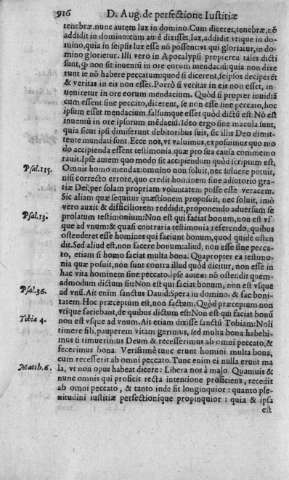 916 D. Aug. de perfectione Iustitiæ
tenebræ. nunc autem lux in domino. Cum diceret, tenebræ, nõ
addidit in domino: cum aũt dixisset, lux, addidit. vtique in do-
mino, quia in seipsis lux esse nõ possent: vt qui gloriatur, in do-
mino glorietur. Illi vero in Apocalypsi propterea tales dicti
sunt, quod non sit inuenti in ore eorum mendaciũ: quia non dixe
runt se nõ habere peccatum: quod si dicerent, seipsos deciperẽt
& veritas in eis non esset. Porrò si veritas in eis non esset, in-
ueniretur in ore eorum mendacium. Quod si propter inuidiã
cum essent sine peccato, dicerent, se non esse sine peccato, hoc
ipsum esset mendacium, falsumque esset quòd dictũ est: Nõ est
inuentũ in ore ipsorum mẽdaciũ. Ideo ergo sine macula sunt,
quia sicut ipsi dimiserunt debitoribus suis, sic illis Deo dimit-
tente mundati sunt. Ecce nos, vt valuimus, exposuimus quo mo
do accipienda essent testimonia quæ pro sua causa commemo
rauit. Ipse autem quo modo sit accipiendum quòd scriptum est,
Psal. 115. Omnis homo mendax: omnino non soluit, nec soluere potuit,
nisi correcto errore, quo credit hominem sine adiutorio gra-
tiæ Dei, per solam propriam voluntatem posse esse veracem.
Sic aliam quæ sequitur quæstionem proposuit, nec soluit, imò
vero auxit & difficiliorem reddidit, proponendo aduersum se
Psal. 13. prolatum testimonium: Non est qui faciat bonum, non est vs-
que ad vnum: & quasi contraria testimonia referendo, quibus
ostenderet esse homines qui faciant bonum, quod quidẽ osten
dit. Sed aliud est, non facere bonum: aliud, non esse sine pecca-
to, etiam si homo faciat multa bona. Quapropter ea testimo-
nia quæ posuit, non sunt contra illud quòd dicitur, non esse in
hac vita hominem sine peccato. ipse autem nõ ostendit quem-
admodum dictum sit: Non est qui faciat bonum, non est vsque
Psal. 36. ad vnũ. Ait enim sanctus Dauid: Spera in domino & fac boni-
tatem. Hoc præceptum est, non factum. Quod præceptum non
vtique faciebant, de quibus dictum est: Non est qui faciat bonũ
Tobiæ 4. non est vsque ad vnum. Ait etiam dixisse sanctũ Tobiam: Noli
timere fili, pauperem vitam gerimus, sed multa bona habebi-
mus si timuerimus Deum & recesserimus ab omni peccato, &
fecerimus bona. Verissimè tunc erunt homini multa bona,
cum recesserit ab omni peccato. Tunc enim ei nulla erunt ma
Matth. 6. la, vt non opus habeat dicere: Libera nos à malo. Quamuis &
nunc omnis qui proficit recta intentione proficiens, recedit
ab omni peccato, & tanto inde fit longinquior: quanto ple-
nitudini iustitiæ perfectionique propinquior: quia & ipsa
est